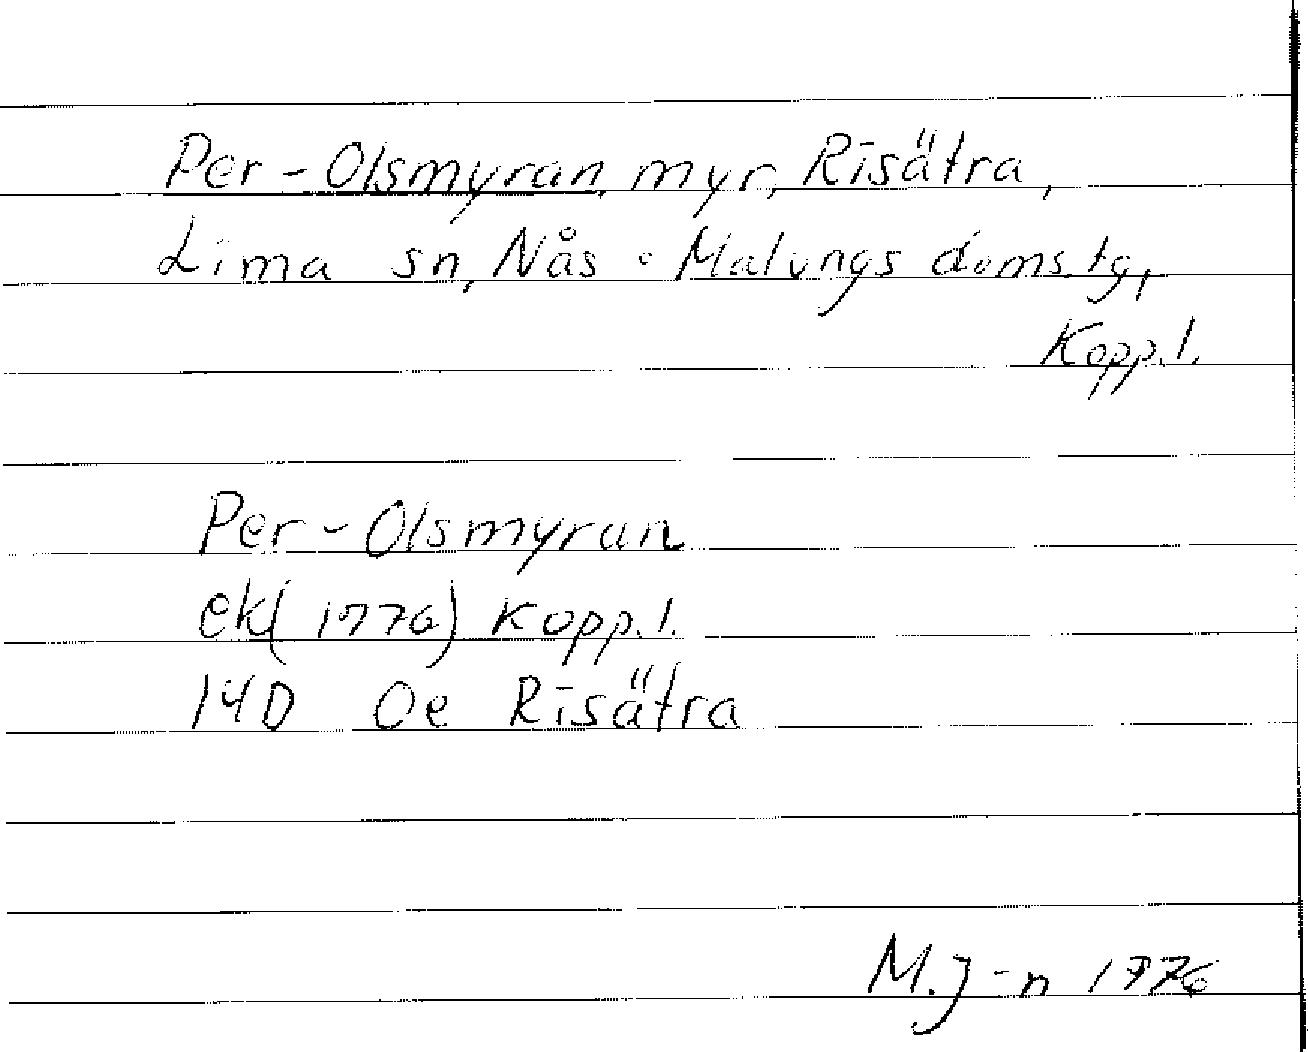 Per-Olsmyran, myr, Risätra,
Lima sn, Nås o Malungs doms.tg,
Kopp.l.
Per-Olsmyran
ek(1976) Kopp.l.
14D 0e Risätra
M.J-n 1976